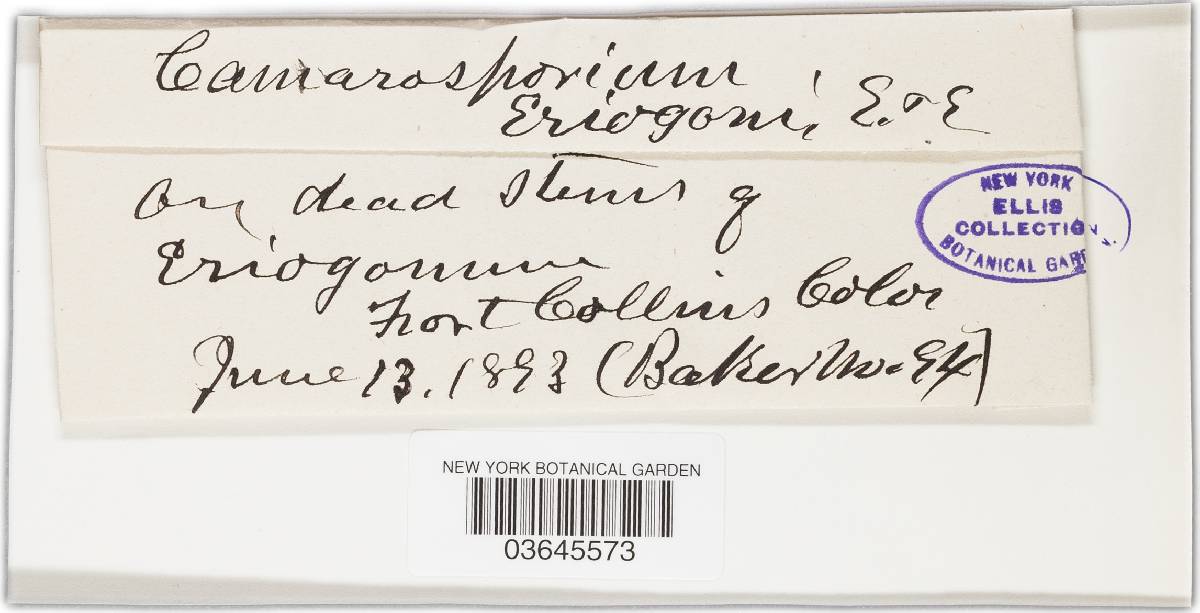 Camarosporium
Eriogoni, E. & E
on dead stems of
Eriogonum
Fort Collins Color
June 13. 1893 (Baker No. 94)
NEW YORK
ELLIS
COLLECTION
BOTANICAL GARDEN.
NEW YORK BOTANICAL GARDEN
03645573